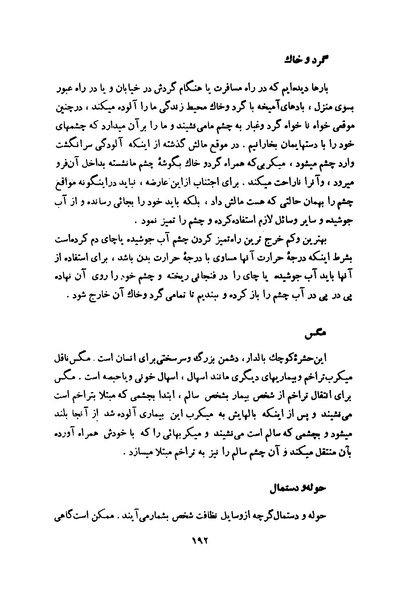 گرد و خاك
بارها دیده‌ایم که در راه مسافرت یا هنگام گردش در خیابان و یا در راه عبور
بسوی منزل ، بادهای‌آمیخه با گرد وخاك محیط زندگی ما را آلوده میکند ، درچنین
موقعی خواه نا خواه گرد وغبار به چشم مامی‌نشیند و ما را بر آن میدارد که چشمهای
خود را با دستهایمان بخارانیم . در موقع مالش گذشته از اینکه آلودگی سرانگشت
وارد چشم میشود ، میکربی‌که همراه گردو خاك بگوشهٔ چشم مانشسته بداخل آن‌فرو
میرود ، وآنرا ناراحت میکند . برای اجتناب ازاین‌عارضه ، نباید دراینگونه مواقع
چشم را بهمان حالتی که هست مالش داد ، بلکه باید خود را بجائی رسانده و از آب
جوشیده و سایر وسائل لازم استفاده‌کرده و چشم را تمیز نمود .
بهترین وکم خرج ترین راه‌تمیز کردن چشم آب جوشیده یاچای دم کرده‌است
بشرط اینکه درجهٔ حرارت آنها مساوی با درجهٔ حرارت بدن باشد ، برای استفاده از
آنها باید آب جوشیده یا چای را در فنجانی ریخته و چشم خود را روی آن نهاده
پی در پی در آب چشم را باز کرده و ببندیم تا تمامی گرد وخاك آن خارج شود .
مگس
این‌حشرهٔ‌کوچك بالدار، دشمن بزرگ وسرسختی‌برای انسان است . مگس‌ناقل
میکرب‌تراخم وبیماریهای دیگری مانند اسهال ، اسهال خونی وباحبصه است . مگس
برای انتقال تراخم از شخص بیمار بشخص سالم ، ابتدا بچشمی که مبتلا بتراخم است
می‌نشیند و پس از اینکه بالهایش به میکرب این بیماری آلوده شد از آنجا بلند
میشود و بچشمی که سالم است می‌نشیند و میکربهائی را که با خودش همراه آورده
بآن منتقل میکند و آن چشم سالم را نیز به تراخم مبتلا میسازد .
حوله‌و دستمال
حوله و دستمال‌گرچه ازوسایل نظافت شخص بشمارمی‌آیند . ممکن است‌گاهی
۱۹۲